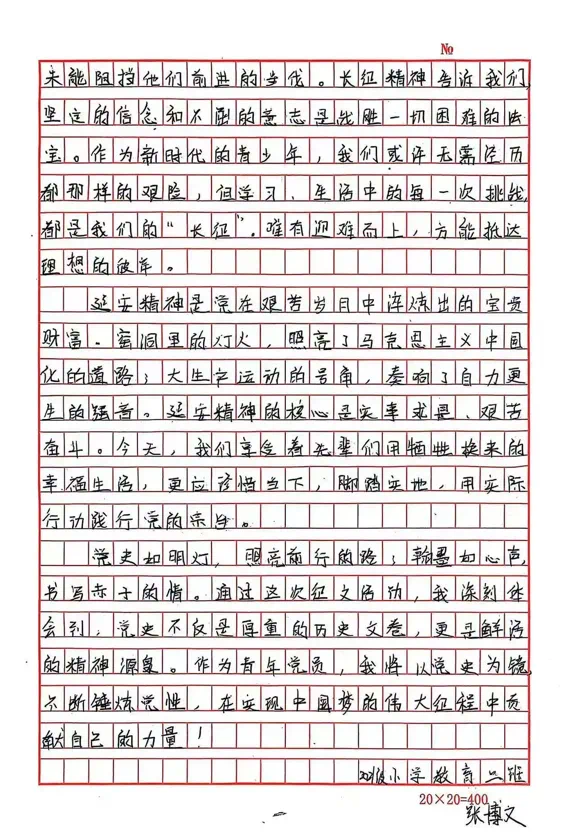 №
未能阻挡他们前进的步伐。长征精神告诉我们,
坚定的信念和不屈的意志是战胜一切困难的法
宝。作为新时代的青少年，我们或许无需经历
都那样的艰险，但学习、生活中的每一次挑战,
都是我们的“长征”.唯有迎难而上，方能抵达
理想的彼岸。
延安精神是党在艰苦岁月中淬炼出的宝贵
财富。窑洞里的灯火，照亮了马克思主义中国
化的道路；大生产运动的号角，奏响了自力更
生的强音。延安精神的核心是实事求是、艰苦
奋斗。今天，我们享受着先辈们用牺牲换来的
幸福生活，更应珍惜当下，脚踏实地，用实际
行动践行党的宗旨。
党史如明灯，照亮前行的路；翰墨如心声,
书写赤子的情。通过这次征文活动，我深刻体
会到，党史不仅是厚重的历史文卷，更是鲜活
的精神源泉。作为青年党员，我将以党史为镜,
不断锤炼党性，在实现中国梦的伟大征程中贡
献自己的力量！
级小学教育二班
20×20=400
张博文